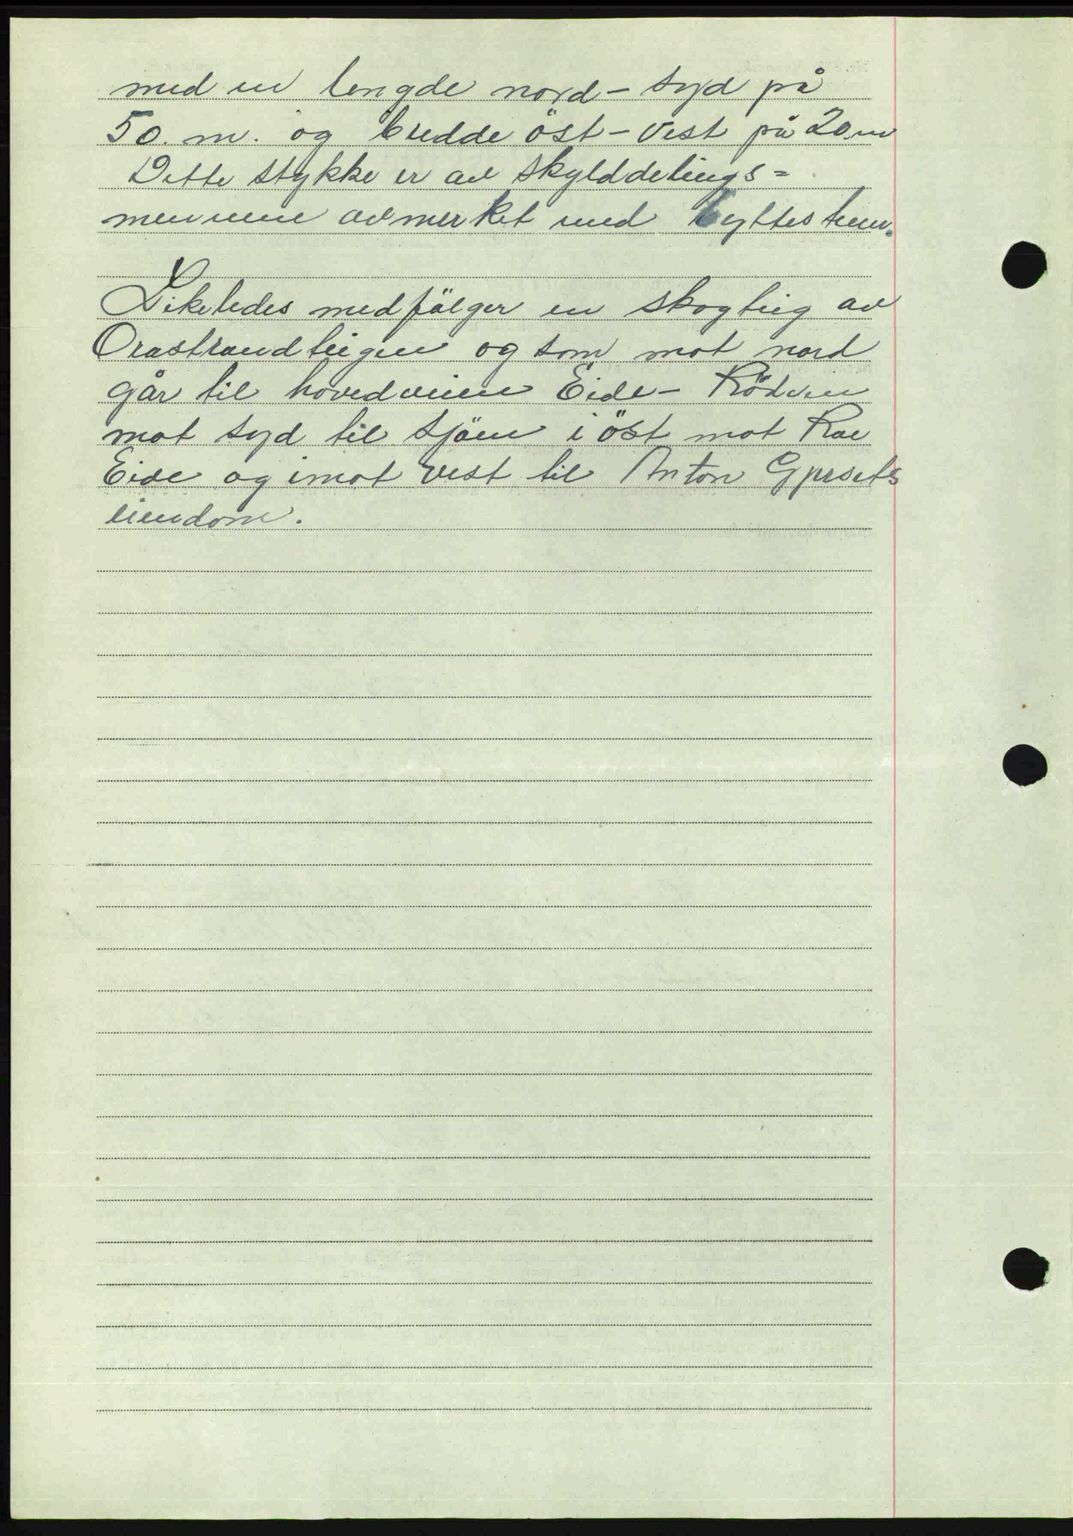 med en lengde nord - syd på
50. m. og bredde öst - vest på 20 m
Dette stykke er av skylddelings=
mennene avmerket med byttesteen.
Likeledes medfölger en skogteig av
Orastrandteigen og som mot nord
går til hovedveien Eide - Rödven
mot syd til sjöen i öst mot Roe
Eide og imot vest til Anton Gjersets
eiendom.